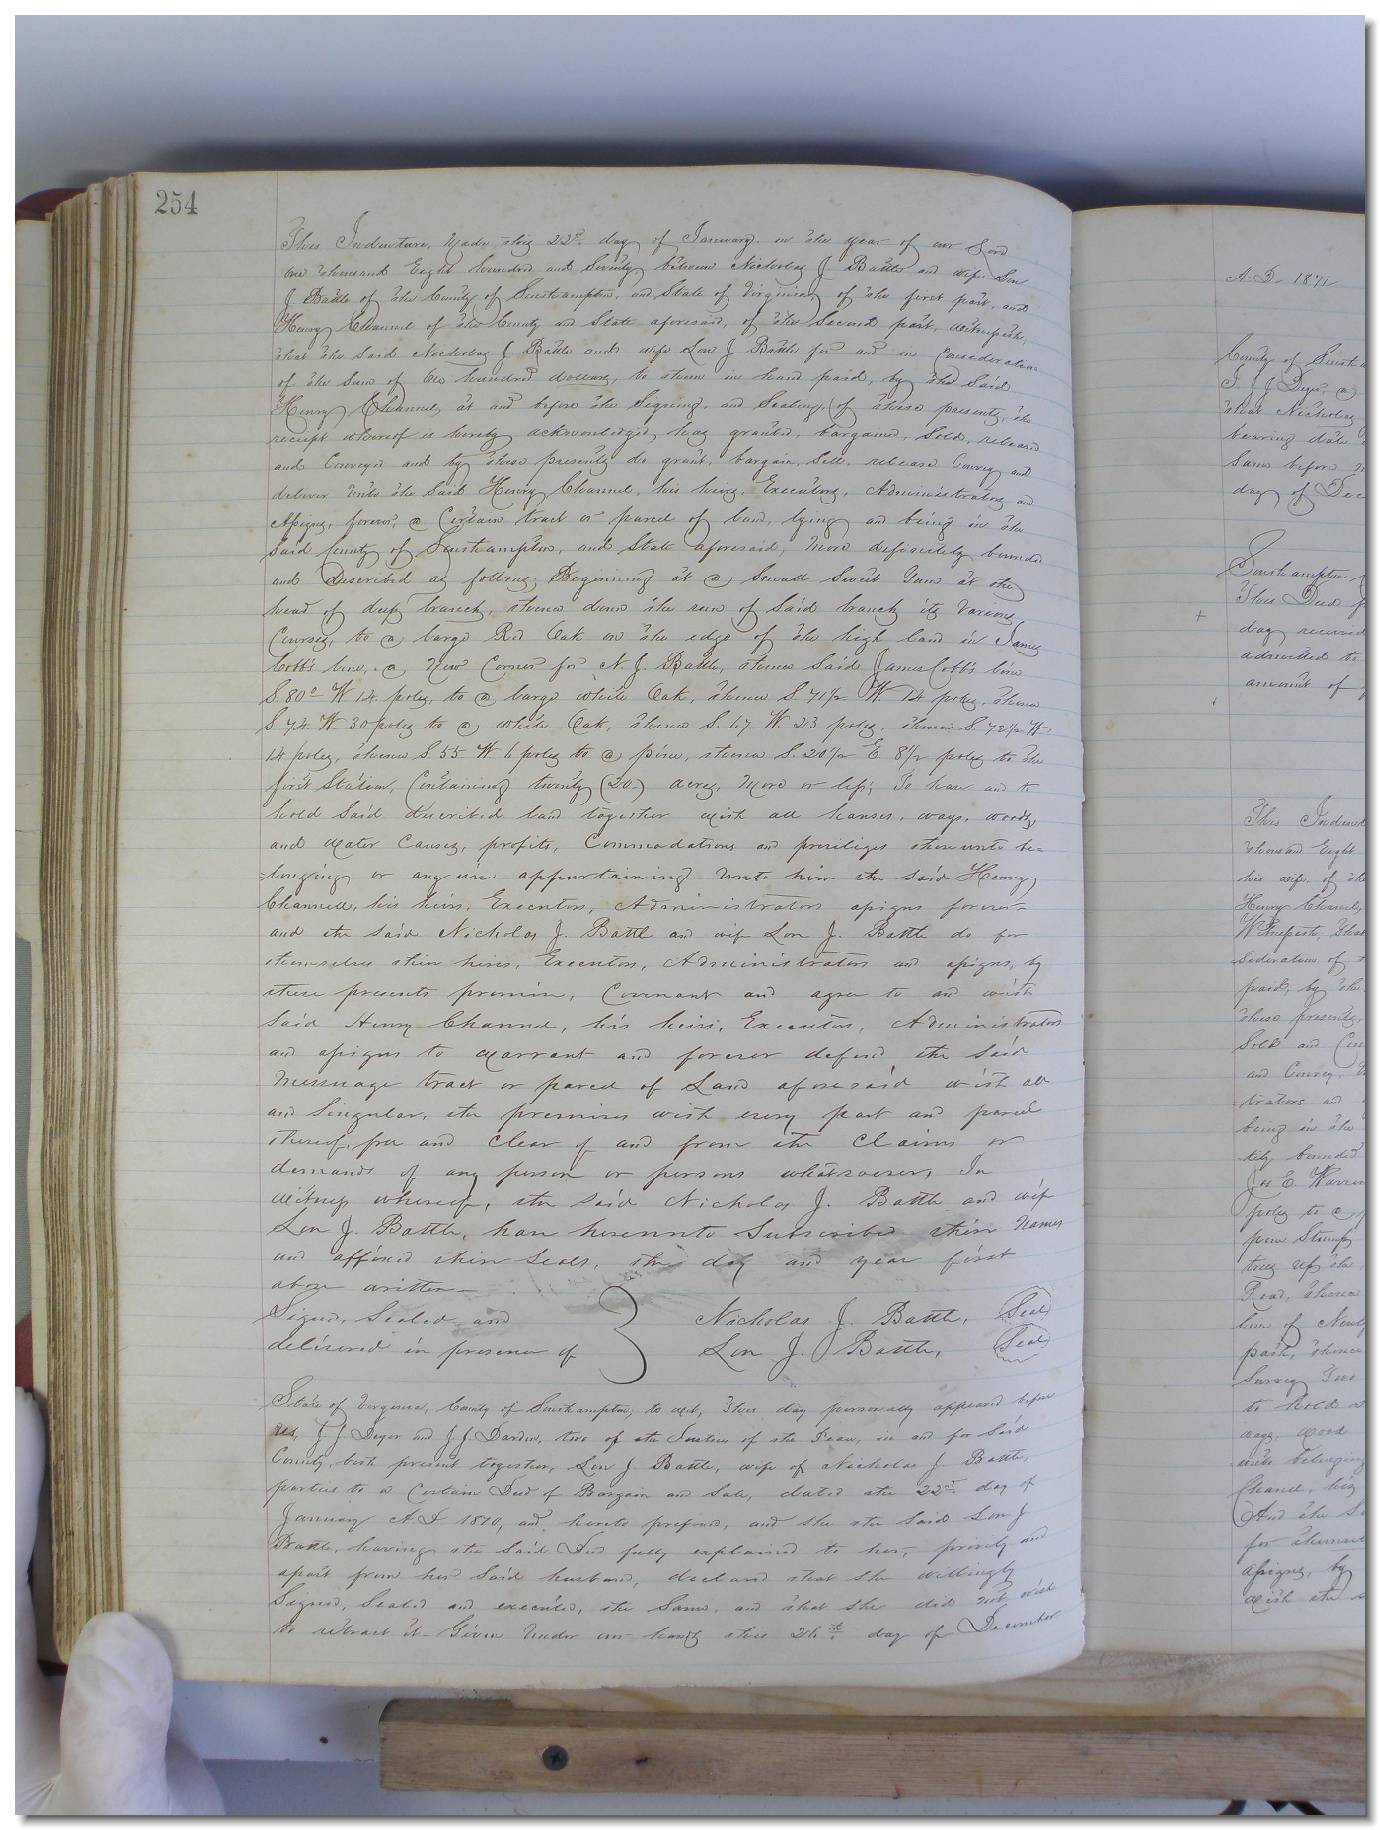 254
This Indenture, Made this 22d day of January in the year of our Lord
one thousand Eight hundred and Seventy between Nicholas J. Battle and wife Lou
J. Battle of the County of Southampton, and State of Virginia of the first part, and
Henry Channel of the County and State aforesaid, of the Second part, Witnesseth,
that the said Nicholas J Battle and wife Lou J Battle for and in Consideration
of the Sum of One hundred dollars, to them in hand paid, by the Said
Henry Channel, at and before the Signing, and Sealing, of these presents, the
receipt whereof is hereby acknowledged, has granted, bargained, Sold, released
and Conveyed and by these presents do grant, bargain, Sell, release Convey and
deliver Unto the Said Henry Channel, his heirs, Executors, Administrators and
Assigns, forever, a Certain tract or parcel of land, lying and being in the
Said County of Southampton, and State aforesaid, More definitely bounded
and Described as follows; Beginning at a Small Sweet Gum at the
head of deep branch, thence down the run of Said branch its various
Courses, to a large Red Oak on the edge of the high land in James
Cobb's line, a New Corner for N. J. Battle, thence Said James Cobb's line
S. 80° W 14 poles, to a large White Oak, thence S. 71½ W. 14 poles, thence
S 74 W 30 poles to a White Oak, thence S. 67 W. 23 poles, thence S. 72½ W.
14 poles, thence S 55 W. 6 poles to a pine, thence S. 20½ E 8½ poles to the
first Station, Containing twenty (20) acres, More or less; To have and to
hold Said described land together with all houses, ways, woods,
and Water Causes, profits, Commodations and priviliges thereunto be=
=longing or any wise appurtaining unto him the said Henry
Channell, his heirs, Executors, Administrators assigns forever
and the said Nicholas J. Battle and wife Lou J. Battle do for
themselves their heirs, Executors, Administrators and assigns, by
these presents promise, Covenant and agree to and with
Said Henry Channel, his heirs, Executors, Administrators
and assigns to Warrant and forever defend the Said
Messuage tract or parcel of Land aforesaid with all
and Singular, the premises with every part and parcel
thereof, free and clear of and from the Claims or
demands of any person or persons whatsoever, In
Witness whereof, the said Nicholas J. Battle and wife
Lou J. Battle, have hereunto Subscribed their Names
and affixed their Seals, the day and year first
above written
Signed, Sealed and Nicholas J. Battle, (Seal)
delivered in presence of Lou J. Battle, (Seal)
State of Virginia, County of Southampton, to wit, This day personally appeared before
us, J. J. Deyer and J. J. Darden, two of the Justices of the Peace, in and for Said
County, both present together, Lou J Battle, wife of Nicholas J. Battle,
parties to a Certain Deed of Bargain and Sale, dated the 22nd day of
January A.D 1870, and hereto prefixed, and She the Said Lou J
Battle, having the Said Deed fully explained to her, privily and
apart from her Said husband, declared that She willingly
Signed, Sealed and executed, the Same, and that She did not wish
to retract it. Given Under our hands this 26th day of December
A.D. 1871
County of South
J. J. Deyer, a
that Nicholas
bearing date
Same before
day of Dec
Southampton
This Deed
day received
admitted to
amount of
This Indent
thousand Eight
his wife, of the
Henry Channel,
Witnesseth, that
sideration of
paid, by the
these presents,
Sold and Con
and Convey,
trators and
being in the
tely bounded
Js E. Warren
poles to a
pine Stump
trees up the
Road, thence
line of Newly
path, thence
Survey
to hold
ways, wood
unto belonging
Channel, his
And the S
for themsel
assigns, by
with the s